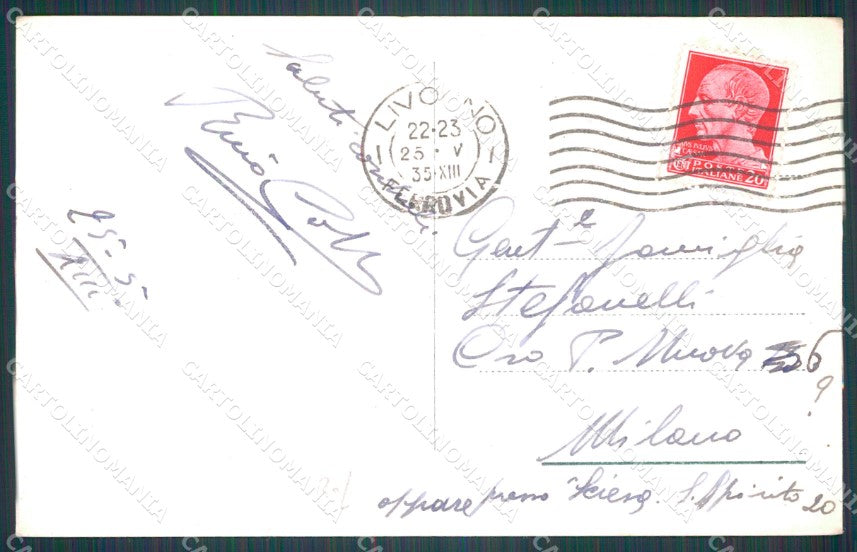 Saluti cordiali
25-5-
XIII
LIVORNO
22-23
25 · V
35·XIII
FERROVIA
POSTE
ITALIANE 20
Gent. Famiglia
Stefanelli
Cso P. Nuova 36
9
Milano
oppure presso S. Spirito 20
CARTOLINOMANIA